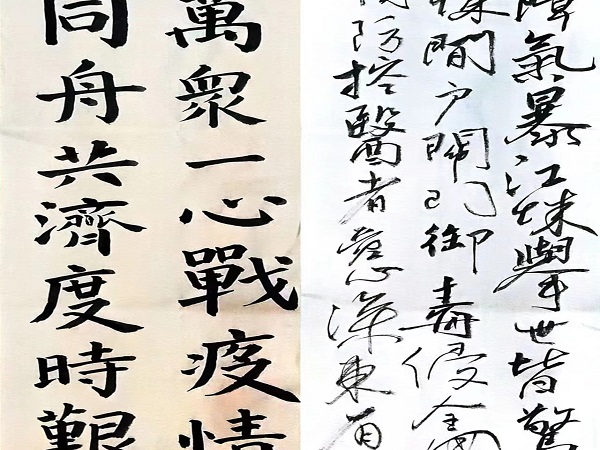 氣暴江城舉世皆驚
戶閉門御毒侵全國
防控醫者慈深東百
萬衆一心戰疫情
同舟共濟度時艱